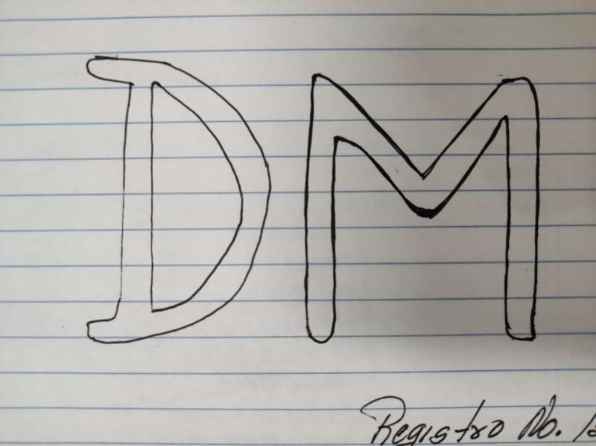 DM
Registro No.